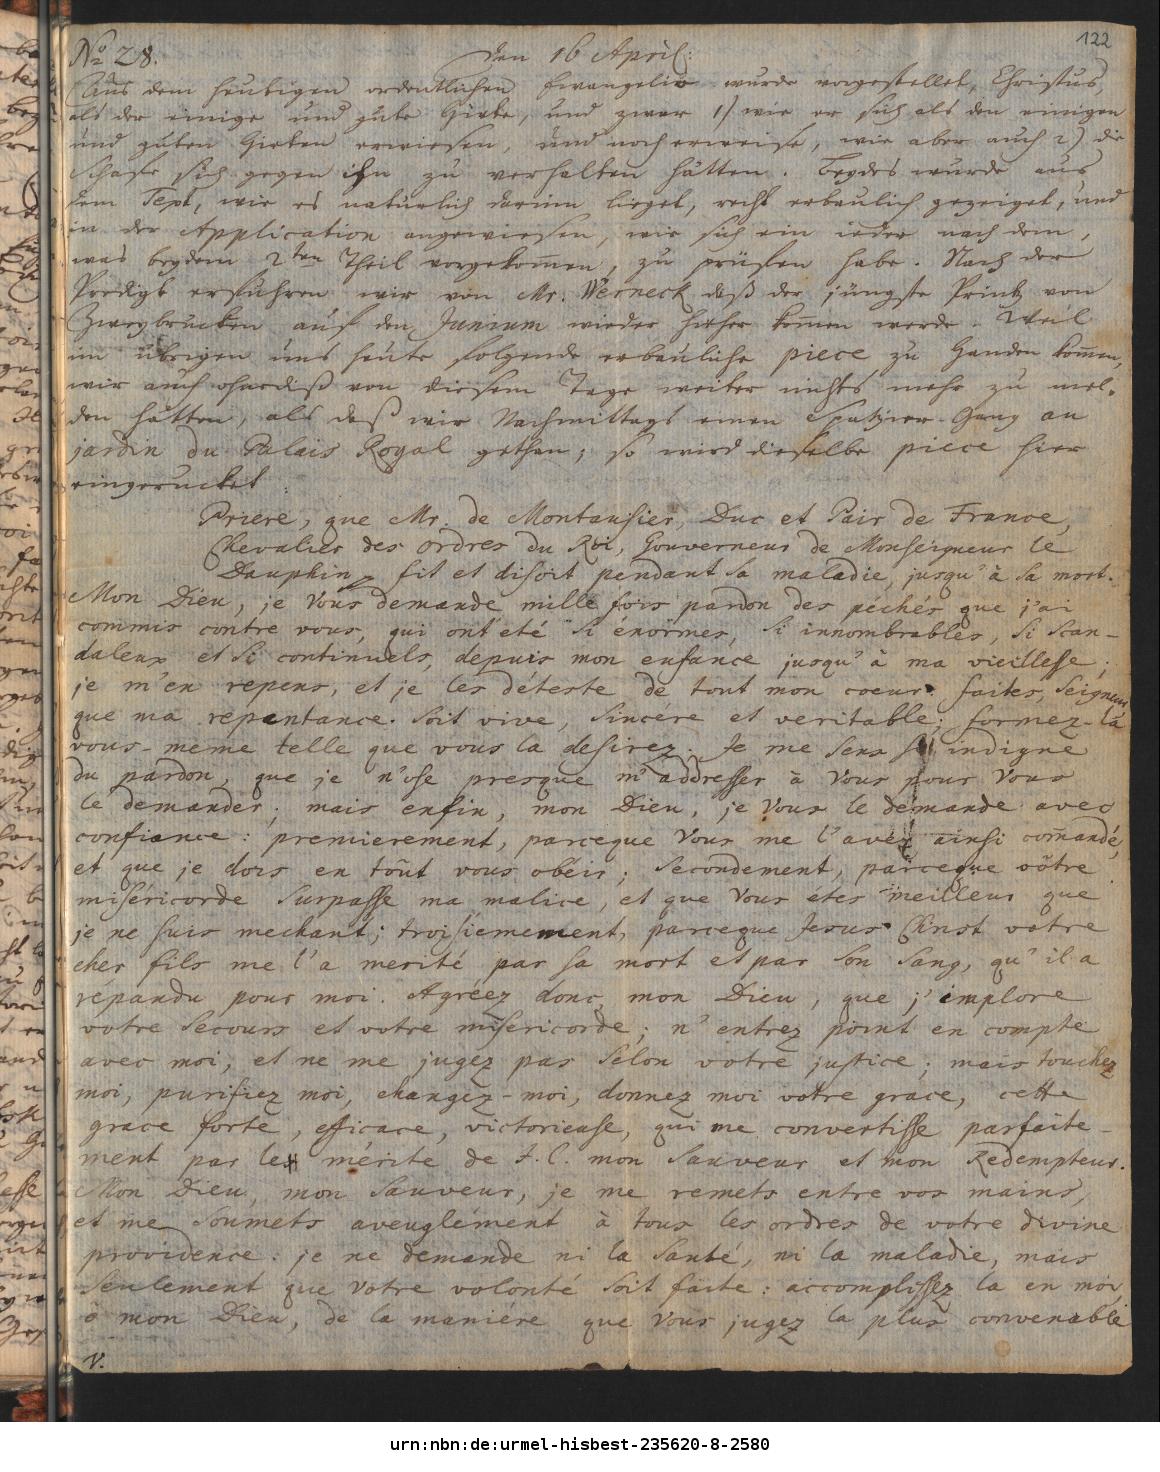 122
No 28. den 16 April:
Aus dem heutigen ordentlichen Evangelio wurde vorgestellet, Christus,
als der einige und gute Hirte, und zwar 1) wie er sich als den einigen
und guten Hirten erwiesen, und noch erweise, wie aber auch 2) die
Schafe sich gegen ihn zu verhalten hätten. Beydes wurde aus
dem Text, wie es natürlich darinn lieget, recht erbaulich gezeiget, und
in der Application angewiesen, wie sich ein ieder nach dem,
was beydem 2ten Theil vorgekom̄en, zu prüfen habe. Nach der
Predigt erfuhren wir von Mr. Werneck daß der jüngste Printz von
Zweybrücken auf den Junium wieder hieher kom̄en werde. Weil
im übrigen uns heute folgende erbauliche piece zu Handen kom̄en,
wir auch ohnediß von diesem Tage weiter nichts mehr zu mel-
den hätten, als daß wir Nachmittags einen Spatzier-Gang au
jardin du Palais Royal gethan; so wird dieselbe piece hier
eingerucket:
Priere, que Mr. de Montausier, Duc et Pair de France,
Chevalier des ordres du Roi, Gouverneur de Monseigneur le
Dauphin, fit et disoit pendant sa maladie, jusqu'à sa mort.
Mon Dieu, je vous demande mille fois pardon des péchés que j'ai
commis contre vous, qui ont eté si énormes, si innombrables, si scan-
daleux et si continuels, depuis mon enfance jusqu'à ma vieillesse;
je m'en repens, et je les déteste de tout mon coeur. faites, Seigneur
que ma repentance soit vive, sincére et veritable; formez-la
vous-meme telle que vous la desirez. Je me sens si indigne
du pardon, que je n'ose presque m'addresser à Vous pour Vous
le demander; mais enfin, mon Dieu, je Vous le demande avec
confiance: premierement, parceque Vous me l'avez ainsi com̄andé,
et que je dois en tout vous obéir; secondement, parceque vôtre
miséricorde surpasse ma malice, et que Vous étes meilleur que
je ne suis mechant; troisiemement, parceque Jesus Christ votre
cher fils me l'a merité par sa mort et par son sang, qu'il a
répandu pour moi. Agréez donc, mon Dieu, que j'implore
votre secours et votre misericorde; n'entrez point en compte
avec moi, et ne me jugez pas selon votre justice; mais touchez
moi, purifiez moi, changez-moi, donnez moi votre grace, cette
grace forte, efficace, victorieuse, qui me convertisse parfaite-
ment par le mérite de J.C. mon Sauveur et mon Redempteur.
Mon Dieu, mon Sauveur, je me remets entre vos mains,
et me soumets aveuglément à tous les ordres de votre divine
providence: je ne demande ni la santé, ni la maladie, mais
seulement que votre volonté soit faite: accomplissez la en moi,
ô mon Dieu, de la maniére que Vous jugez la plus convenable
V.
urn:nbn:de:urmel-hisbest-235620-8-2580